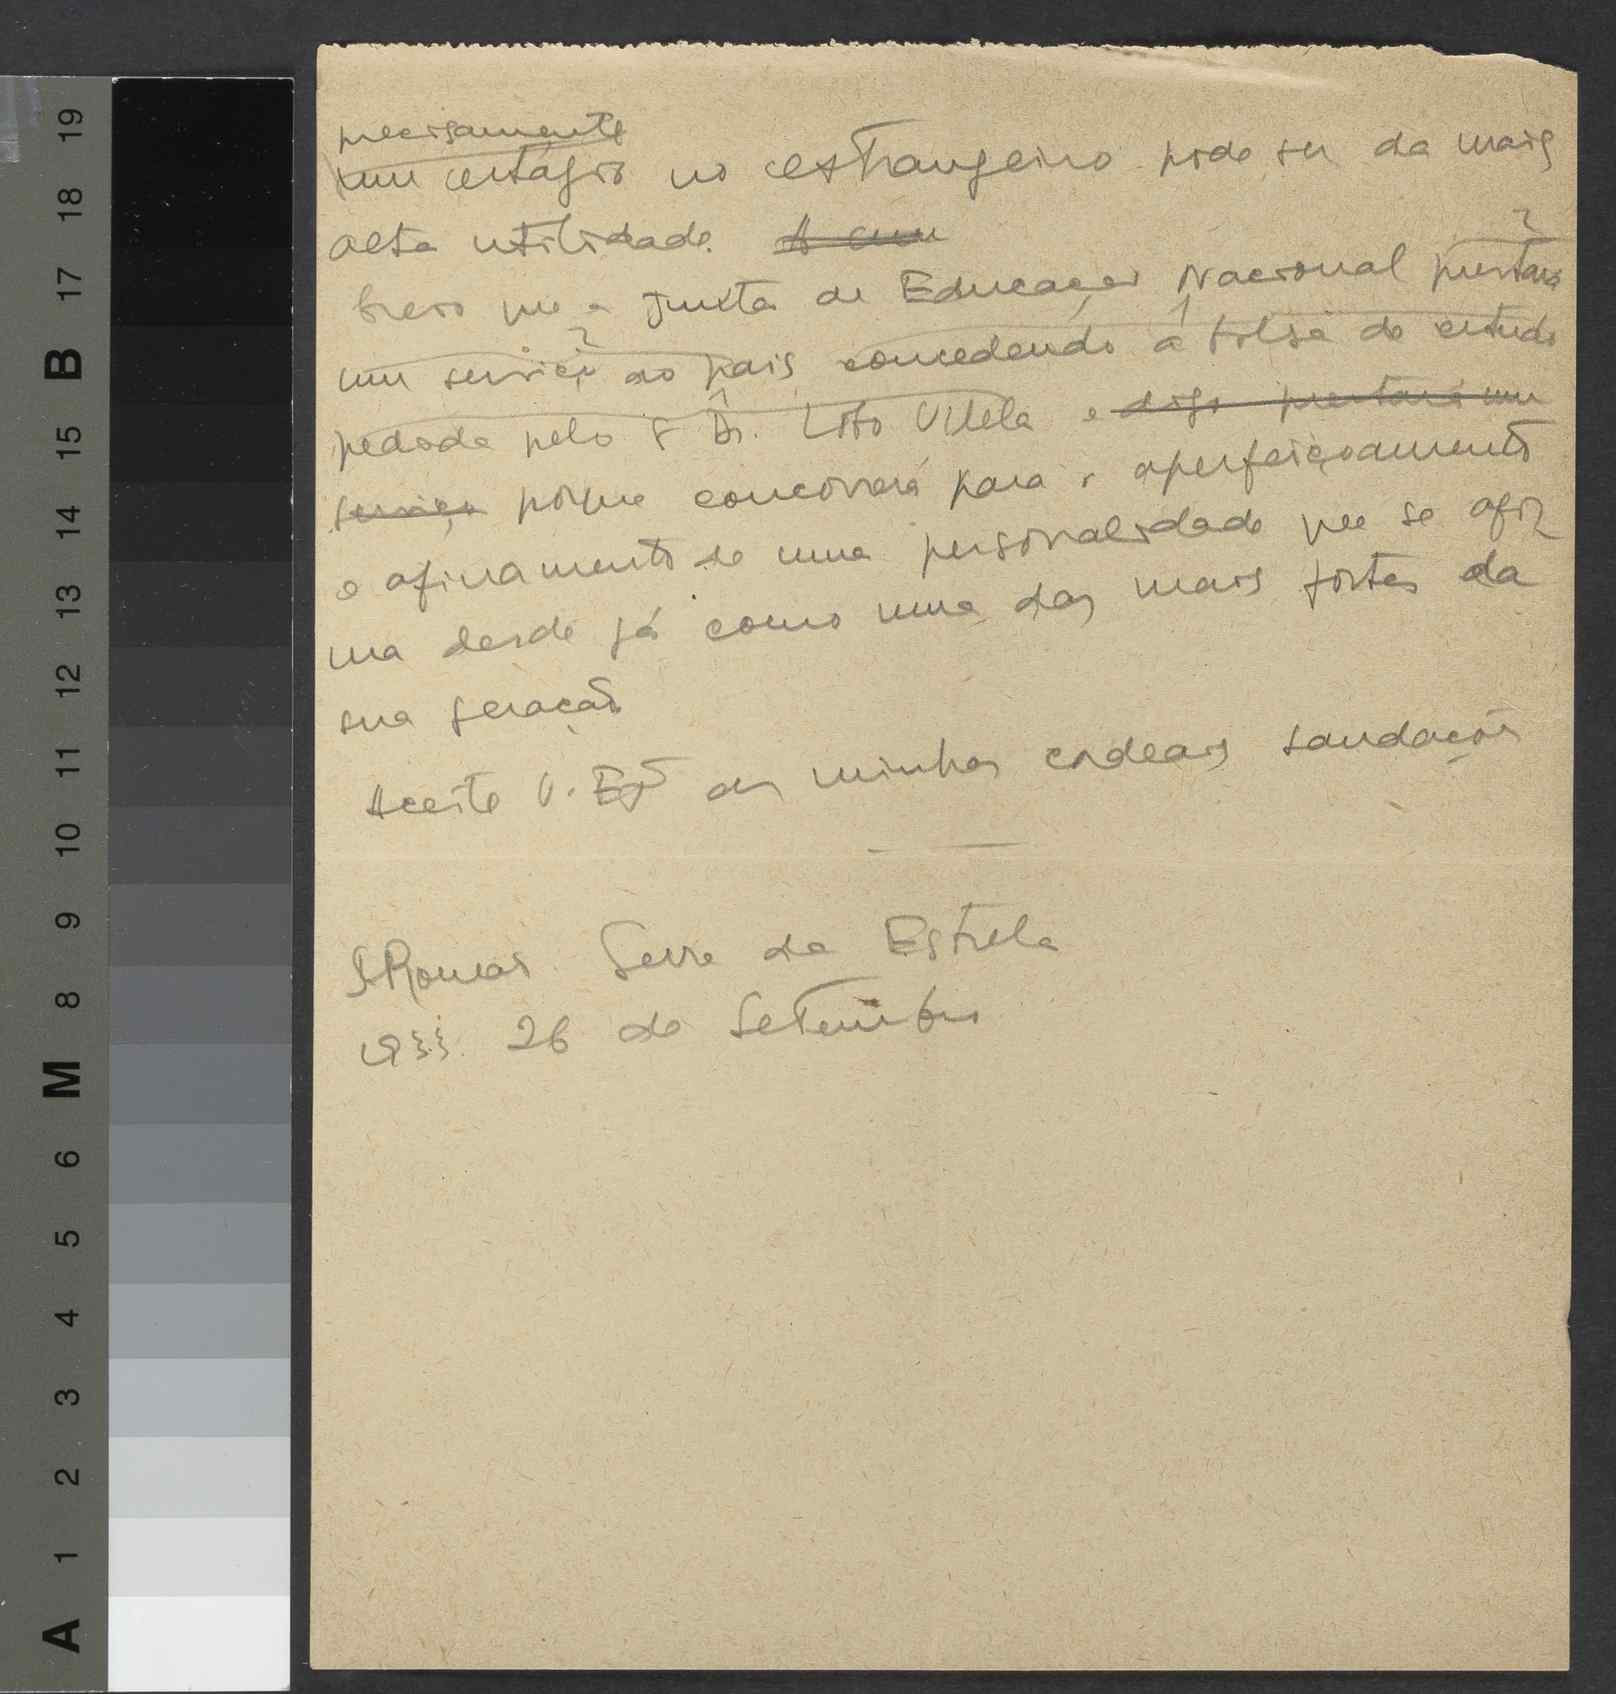 19
18
17
B
15
14
13
12
11
10
9
8
M
6
5
4
3
2
1
A
precisamente
um estágio no estrangeiro pode ser da mais
alta utilidade.
Creio que a Junta de Educação Nacional prestará
um serviço ao pais concedendo a bolsa de estudo
pedida pelo Sr Dr. Lobo Vilela e digo prestará um
serviço porque concorrerá para o aperfeiçoamento
e afinamento de uma personalidade que se afir
ma desde já como uma das mais fortes da
sua geração
Aceite V. Exª as minhas cordeais saudações
S. Romão Serra da Estrela
933. 26 de Setembro